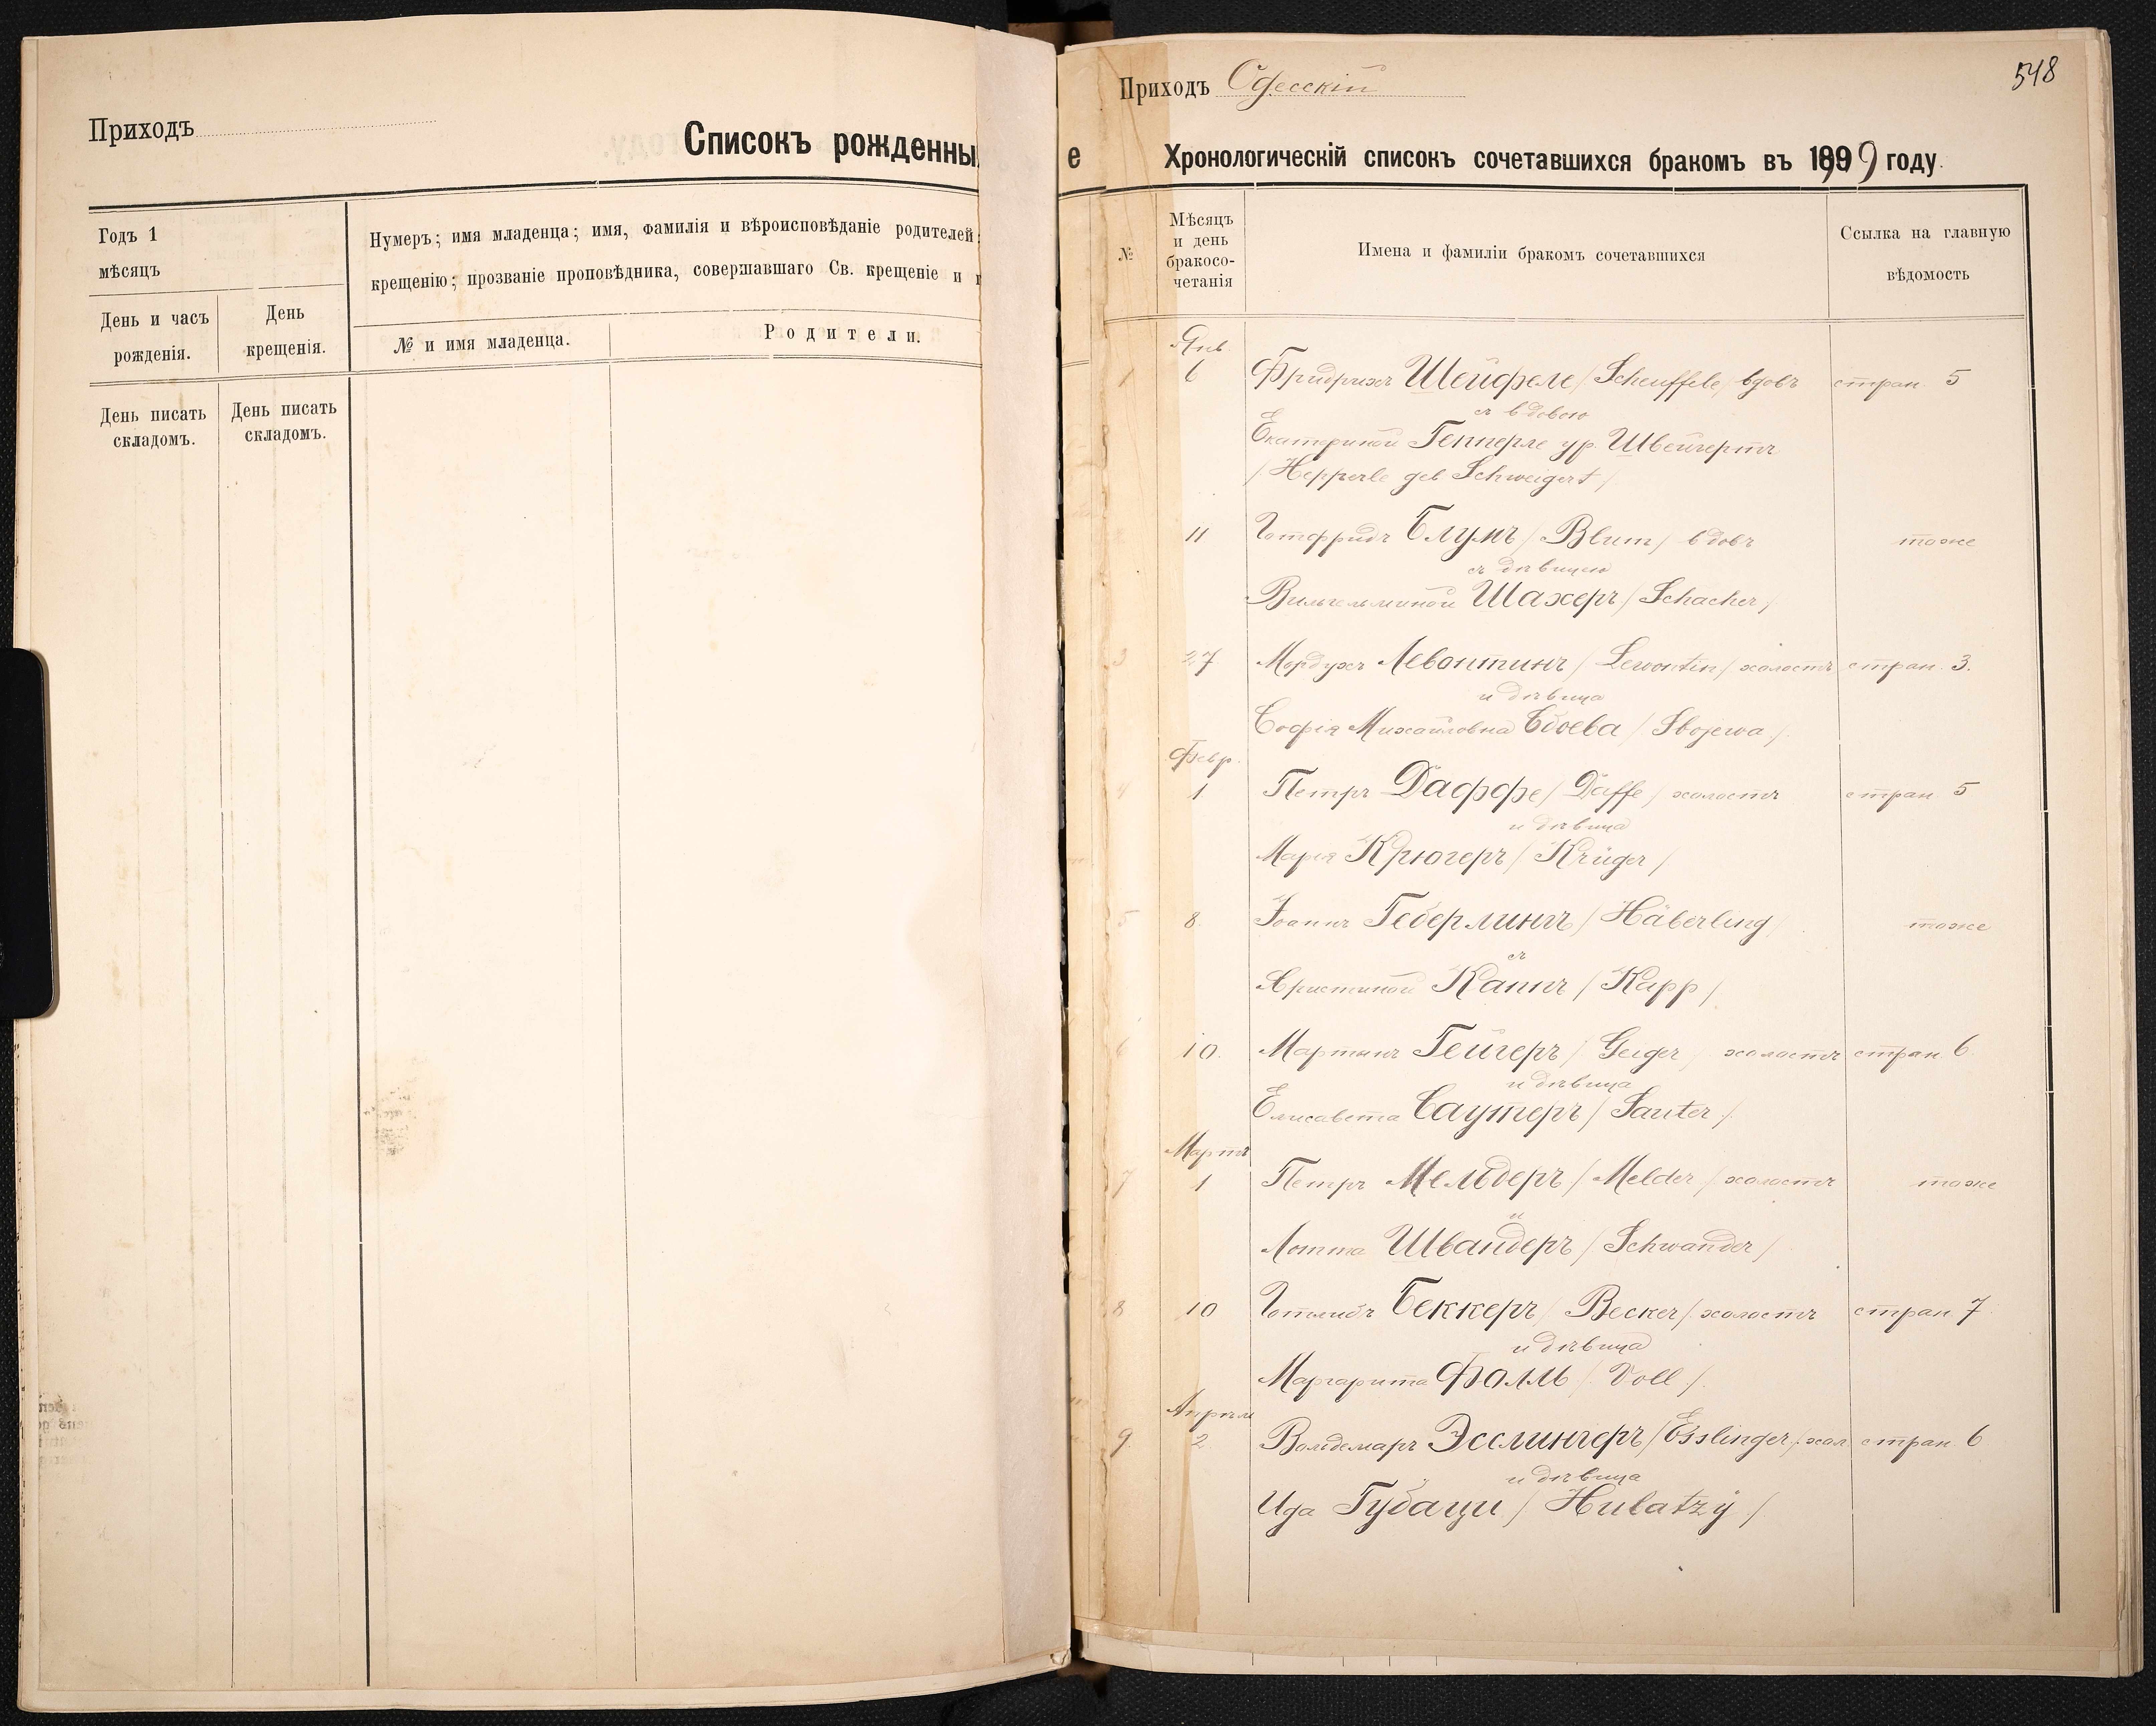 Приходъ
Списокъ рожденны
Годъ 1
мѣсяцъ
Нумеръ; имя младенца; имя, фамилія и вѣроисповѣданіе родителей;
крещенію; прозваніе проповѣдника, совершавшаго Св. крещеніе и
День и часъ
рожденія.
День
крещенія.
№ и имя младенца.
Родители.
День писать
складомъ.
День писать
складомъ.
Приходъ Одесскій
548
е
Хронологическій списокъ сочетавшихся бракомъ въ 1899 году.
№
Мѣсяцъ
и день
бракосо-
четанія
Имена и фамиліи бракомъ сочетавшихся
Ссылка на главную
вѣдомость
Янв.
1 6 Фридрихъ Шейфеле / Scheuffele / вдовъ стран 5
съ вдовою
Екатериной Гепперле ур. Швейгертъ
/ Hepperle geb Schweigert /
11 Готфридъ Блумъ / Blum / вдовъ тоже
съ дѣвицею
Вильгельминой Шахеръ / Schacher /
3 27 Мордухъ Левонтинъ / Lewontin / холостъ стран. 3.
и дѣвица
Софія Михайловна Сбоева / Sbojewa /
Февр.
4 1 Петръ Даффе / Daffe / холостъ стран 5
и дѣвица
Марія Крюгеръ / Krüger /
5 8. Іоаннъ Геберлингъ / Häberling / тоже
съ
Христиной Каппъ / Kapp /
6 10. Мартинъ Гейгеръ / Geiger / холостъ стран 6
и дѣвица
Елисавета Саутеръ / Sauter /
Мартъ
7 1 Петръ Мельдеръ / Melder / холостъ тоже
и
Лотта Швандеръ / Schwander /
8 10 Готлибъ Беккеръ / Becker / холостъ стран 7
и дѣвица
Маргарита Фолль / Voll /
Апрѣль
9. 2 Вольдемаръ Эсслингеръ / Esslinger / хол стран 6
и дѣвица
Ида Губаци / Hubatzÿ /